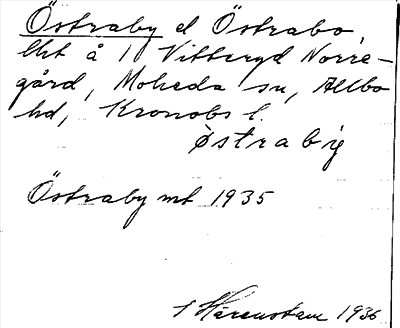 Östraby el Östrabo,
lht å 1 Vitteryd Norre-
gård, Moheda sn, Allbo
hd, Kronobs l.
östraby
Östraby mt 1935
Hårenstam 1936